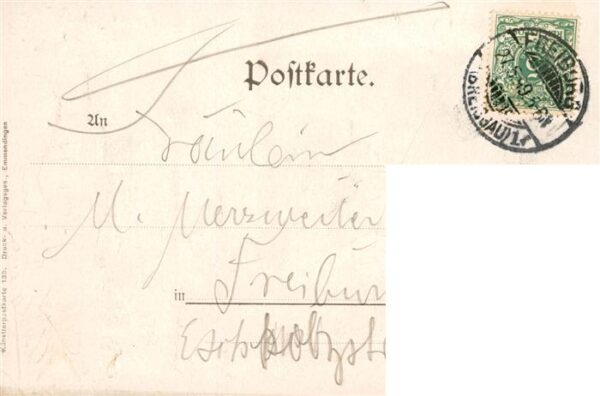 Postkarte.
An
Fräulein
M. Merzweiler
in Freibur
Escholzstr
FREIBURG
(BREISGAU) 1
Künstlerpostkarte 130. Druck- u. Verlagsges., Emmendingen